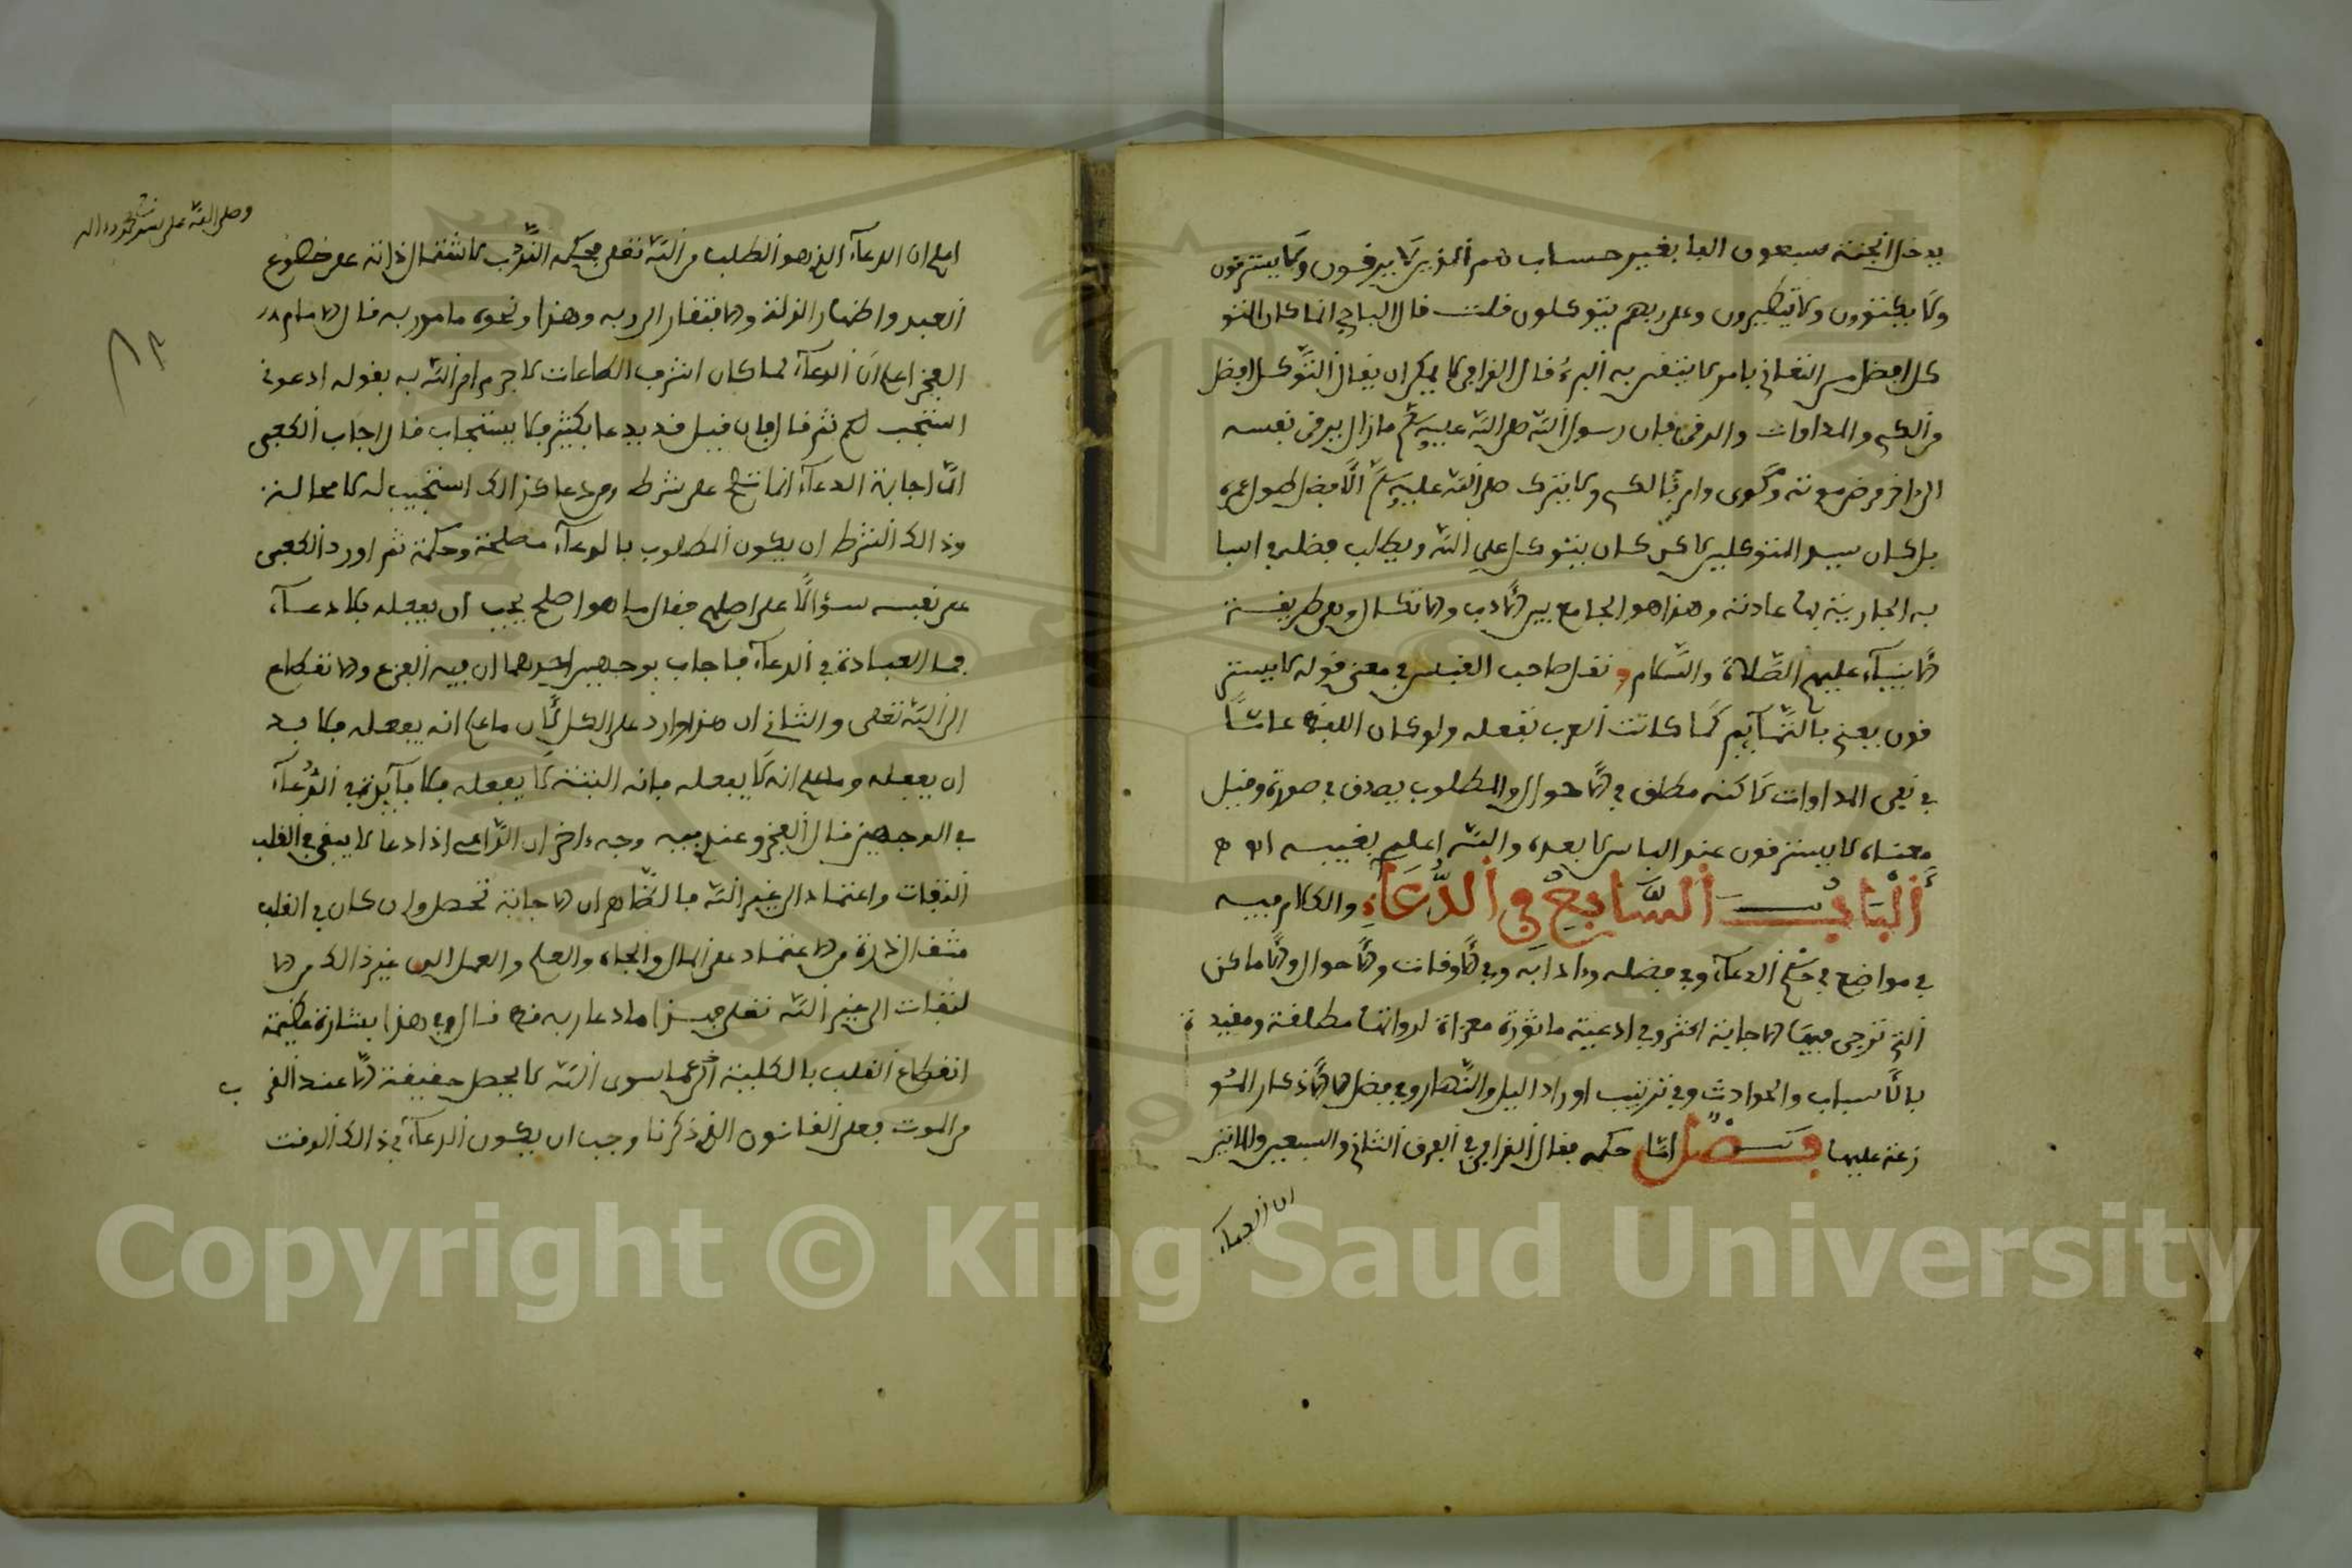 يدخل الجنة سبعون الفا بغير حساب هم الذين لا يرقون ولا يسترقون
ولا يكتوون ولا يتطيرون وعلى ربهم يتوكلون قلت قال الباجي انما كان التو
كل افضل من التعاني بامر لا يتيقن به البرء قال القرافي لا يمكن ان يقال التوكل افضل
من الكي والمداوات والرقى فان رسول الله صلى الله عليه وسلم ما زال يرقى نفسه
الى اخر مرض موته وكوى وامر بالكي ولا يترك صلى الله عليه وسلم الافضل طول عمره
بل كان سيد المتوكلين لاكن كان يتوكل على الله ويطلب فضله في اسبا
به الجارية بها عادته وهذا هو الجامع بين الادب والاتكال وهي طريقة
الانبياء عليهم الصلاة والسلام ونقل صاحب القبس في معنى قوله لا يستر
قون يعني بالتمائم كما كانت العرب تفعله ولو كان اللفظ عاما
في نفي المداوات لاكنه مطلق في الاحوال والمطلوب يصدق في صورة وقيل
معناه لا يسترقون عند الباس لا بعده والله اعلم بغيبه انتهى
الباب السابع في الدعاء والكلام فيه
في مواضع في حكم الدعاء وفي فضله وءادابه وفي الاوقات والاحوال والاماكن
التي ترجى فيها الاجابة اكثر وفي ادعية ماثورة معزاة لرواتها مطلقة ومقيدة
بالاسباب والحوادث وفي ترتيب اوراد اليل والنهار وفي فضل الاذكار المتو
زعة عليها فصل اما حكمه فقال القرافي في الفرق الثاني والسبعين والمايتين
ان الدعاء
وصلى الله على سيدنا محمد وءاله
اعلم ان الدعاء الذي هو الطلب من الله تعلى بحكمه الندب لاشتمال ذاته على خضوع
العبد واظهار الذلة والافتقار الى ربه وهذا ونحوه مامور به قال الامام
الفخر اعلم ان الدعاء لما كان اشرف الطاعات لا جرم امر الله به بقوله ادعوني
استجب لكم ثم قال فان قيل قد يدعا بكثير فلا يستجاب قال اجاب الكعبي
ان اجابة الدعاء انما تصح على شرط ومن دعا كذالك استجيب له لا محالة
وذالك الشرط ان يكون المطلوب بالدعاء مصلحة وحكمة ثم اورد الكعبي
على نفسه سؤالا على اصلهم فقال ما هو اصلح يجب ان يفعله بلا دعاء
فما العبادة في الدعاء فاجاب بوجهين احدهما ان فيه الفزع والانقطاع
الى الله تعلى والثاني ان هذا وارد على الكل لان ما علم انه يفعله فلا بد
ان يفعله وما علم انه لا يفعله فانه البتة لا يفعله فلا فائدة في الدعاء
في الوجهين قال الفخر وعندي فيه وجه ءاخر ان الداعي اذا دعا لا يبقى في القلب
التفات واعتماد الى غير الله فالظاهر ان الاجابة تحصل وان كان في القلب
مثقال ذرة من الاعتماد على المال والجاه والعلم والعمل الى غير ذالك من الا
لتفات الى غير الله تعلى فهذا ما دعا ربه قط قال وفي هذا بشارة عظيمة
انقطاع القلب بالكلية عما سوى الله لا يحصل حقيقة الا عند القر
ب
من الموت فعلى القانون الذي ذكرنا وجب ان يكون الدعاء في ذالك الوقت
Copyright © King Saud University